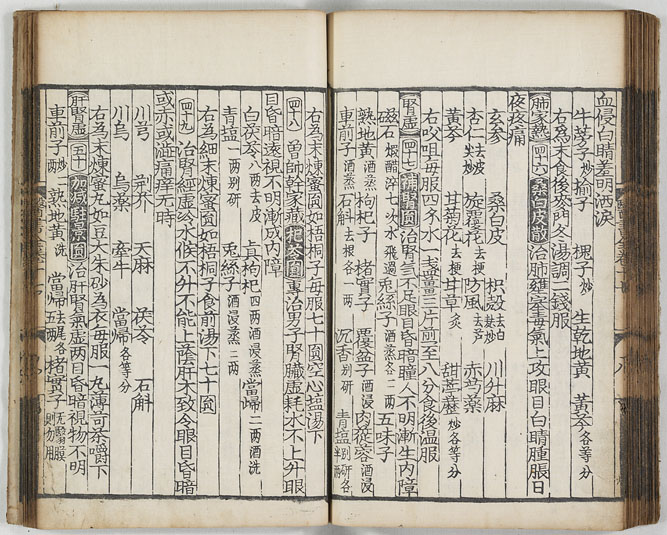 血侵白睛羞明洒淚
牛蒡子炒 榆子 槐子炒 生乾地黃 黃芩各等分
右爲末食後麥門冬湯調二錢服
肺家熱 四十六 桑白皮散 治肺壅毒氣上攻眼目白睛腫脹日
夜疼痛
玄參 桑白皮 枳殼去白麩炒 川升麻
杏仁去皮尖炒 旋覆花去梗 防風去芦 赤芍藥
黃芩 甘菊花去梗 甘草炙 甜葶藶炒各等分
右㕮咀每服四錢水一盞薑三片煎至八分食後溫服
腎虛 四十七 補腎圓 治腎氣不足眼目昏暗瞳人不明漸生內障
磁石煅醋淬七次水飛過 兎絲子酒浸蒸各二兩 五味子
熟地黃酒蒸 枸杞子 楮實子 覆盆子酒浸 肉蓯蓉酒浸
車前子酒蒸 石斛去根各一兩 沉香別研 青塩別研各半兩
右爲末煉蜜圓如梧桐子每服七十圓空心塩湯下
四十八 曾帥幹家藏 圓 專治男子腎臟虛耗水不上升眼
目昏暗遠視不明漸成內障
白茯苓八兩去皮 真枸杞四兩酒浸蒸 當歸二兩酒洗
青塩一兩別研 兎絲子酒浸蒸二兩
右爲細末煉蜜圓如梧桐子食前湯下七十圓
四十九 治腎經虛冷水候不升不能上蔭肝木致令眼目昏暗
或赤或澁痛痒無時
川芎 荊芥 天麻 茯苓 石斛
川烏 烏藥 牽牛 當歸各等分
右爲末煉蜜丸如豆大朱砂爲衣每服一丸薄荷茶嚼下
肝腎虛 五十 加減駐景圓 治肝腎氣虛兩目昏暗視物不明
車前子炒二兩 熟地黃洗 當歸去尾各五兩 楮實子無翳膜則勿用